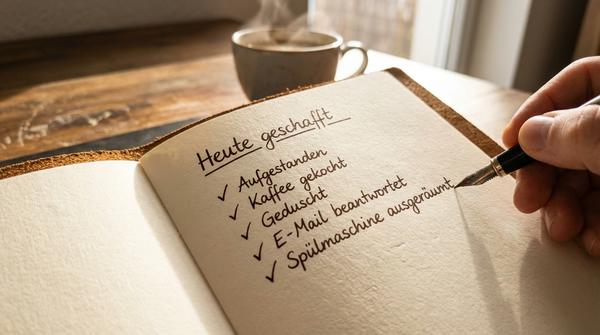 Heute geschafft
✓ Aufgestanden
✓ Kaffee gekocht
✓ Geduscht
✓ E-Mail beantwortet
✓ Spülmaschine ausgeräumt